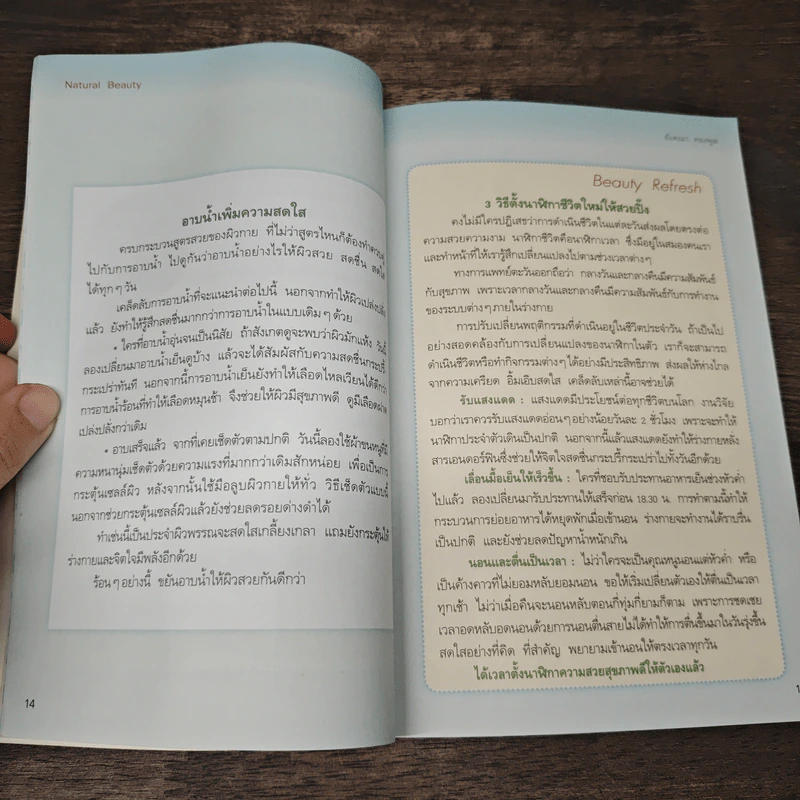 Natural Beauty
อาบน้ำเพิ่มความสดใส
ครบกระบวนสูตรสวยของผิวกาย ที่ไม่ว่าสูตรไหนก็ต้องทำควบคู่
ไปกับการอาบน้ำ ไปดูกันว่าอาบน้ำอย่างไรให้ผิวสวย สดชื่น สดใส
ได้ทุกๆวัน
เคล็ดลับการอาบน้ำที่จะแนะนำต่อไปนี้ นอกจากทำให้ผิวเปล่งปลั่ง
แล้ว ยังทำให้รู้สึกสดชื่นมากกว่าการอาบน้ำในแบบเดิมๆด้วย
• ใครที่อาบน้ำอุ่นจนเป็นนิสัย ถ้าสังเกตดูจะพบว่าผิวมักแห้ง วันนี้
ลองเปลี่ยนมาอาบน้ำเย็นดูบ้าง แล้วจะได้สัมผัสกับความสดชื่นกระปรี้
กระเปร่าทันที นอกจากนี้การอาบน้ำเย็นยังทำให้เลือดไหลเวียนได้ดีกว่า
การอาบน้ำร้อนที่ทำให้เลือดหมุนช้า จึงช่วยให้ผิวมีสุขภาพดี ดูมีเลือดฝาด
เปล่งปลั่งกว่าเดิม
• อาบเสร็จแล้ว จากที่เคยเช็ดตัวตามปกติ วันนี้ลองใช้ผ้าขนหนูที่มี
ความหนานุ่มเช็ดตัวด้วยความแรงที่มากกว่าเดิมสักหน่อย เพื่อเป็นการ
กระตุ้นเซลล์ผิว หลังจากนั้นใช้มือลูบผิวกายให้ทั่ว วิธีเช็ดตัวแบบนี้
นอกจากช่วยกระตุ้นเซลล์ผิวแล้วยังช่วยลดรอยด่างดำได้
ทำเช่นนี้เป็นประจำผิวพรรณจะสดใสเกลี้ยงเกลา แถมยังกระตุ้นให้
ร่างกายและจิตใจมีพลังอีกด้วย
ร้อนๆอย่างนี้ ขยันอาบน้ำให้ผิวสวยกันดีกว่า
14
Beauty Refresh
3 วิธีตั้งนาฬิกาชีวิตใหม่ให้สวยปิ๊ง
คงไม่มีใครปฏิเสธว่าการดำเนินชีวิตในแต่ละวันส่งผลโดยตรงต่อ
ความสวยความงาม นาฬิกาชีวิตคือนาฬิกาเวลา ซึ่งมีอยู่ในสมองคนเรา
และทำหน้าที่ให้เรารู้สึกเปลี่ยนแปลงไปตามช่วงเวลาต่างๆ
ทางการแพทย์ตะวันออกถือว่า กลางวันและกลางคืนมีความสัมพันธ์
กับสุขภาพ เพราะเวลากลางวันและกลางคืนมีความสัมพันธ์กับการทำงาน
ของระบบต่างๆภายในร่างกาย
การปรับเปลี่ยนพฤติกรรมที่ดำเนินอยู่ในชีวิตประจำวัน ถ้าเป็นไป
อย่างสอดคล้องกับการเปลี่ยนแปลงของนาฬิกาในตัว เราก็จะสามารถ
ดำเนินชีวิตหรือทำกิจกรรมต่างๆได้อย่างมีประสิทธิภาพ ส่งผลให้ห่างไกล
จากความเครียด อิ่มเอิบสดใส เคล็ดลับเหล่านี้อาจช่วยได้
รับแสงแดด : แสงแดดมีประโยชน์ต่อทุกชีวิตบนโลก งานวิจัย
บอกว่าเราควรรับแสงแดดอ่อนๆอย่างน้อยวันละ 2 ชั่วโมง เพราะจะทำให้
นาฬิกาประจำตัวเดินเป็นปกติ นอกจากนี้แสงแดดยังทำให้ร่างกายหลั่ง
สารเอนดอร์ฟินซึ่งช่วยให้จิตใจสดชื่นกระปรี้กระเปร่าไปทั้งวันอีกด้วย
เลื่อนมื้อเย็นให้เร็วขึ้น : ใครที่ชอบรับประทานอาหารเย็นช่วงหัวค่ำ
ไปแล้ว ลองเปลี่ยนมารับประทานให้เสร็จก่อน 18.30 น. การทำตามนี้ทำให้
กระบวนการย่อยอาหารได้หยุดพักเมื่อเข้านอน ร่างกายจะทำงานได้ราบรื่น
เป็นปกติ และยังช่วยลดปัญหาน้ำหนักเกิน
นอนและตื่นเป็นเวลา : ไม่ว่าใครจะเป็นคุณหนูนอนแต่หัวค่ำ หรือ
เป็นค้างคาวที่ไม่ยอมหลับยอมนอน ขอให้เริ่มเปลี่ยนตัวเองให้ตื่นเป็นเวลา
ทุกเช้า ไม่ว่าเมื่อคืนจะนอนหลับตอนกี่ทุ่มกี่ยามก็ตาม เพราะการชดเชย
เวลาอดหลับอดนอนด้วยการนอนตื่นสายไม่ได้ทำให้การตื่นขึ้นมาในวันรุ่งขึ้น
สดใสอย่างที่คิด ที่สำคัญ พยายามเข้านอนให้ตรงเวลาทุกวัน
ได้เวลาตั้งนาฬิกาความสวยสุขภาพดีให้ตัวเองแล้ว